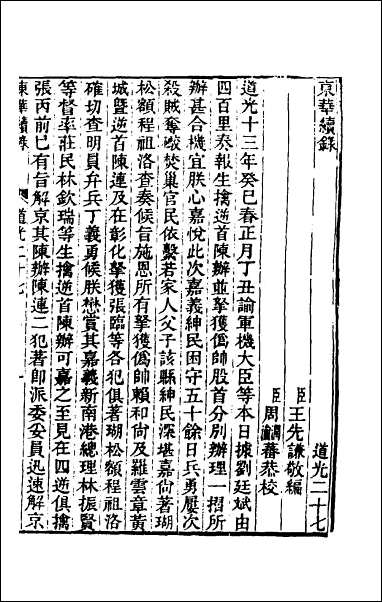 東華續錄
道光二十七
臣王先謙敬編
臣周潤蕃恭校
道光十三年癸巳春正月丁丑諭軍機大臣等本日據劉廷斌由
四百里奏報生擒逆首陳辦並拏獲僞帥股首分別辦理一摺所
辦甚合機宜朕心嘉悅此次嘉義紳民困守五十餘日兵勇屢次
殺賊奪礮焚巢官民依繫若家人父子該縣紳民深堪嘉尚著瑚
松額程祖洛查奏候旨施恩所有拏獲僞帥賴和尚及羅雲章黃
城暨逆首陳連及在彰化拏獲張臨等各犯俱著瑚松額程祖洛
確切查明員弁兵丁義勇候朕懋賞其嘉義新南港總理林振賢
等督率莊民林欽瑞等生擒逆首陳辦可嘉之至見在四逆俱擒
張丙前已有旨解京其陳辦陳連二犯著卽派委妥員迅速解京
東華續錄
道光二十七
一